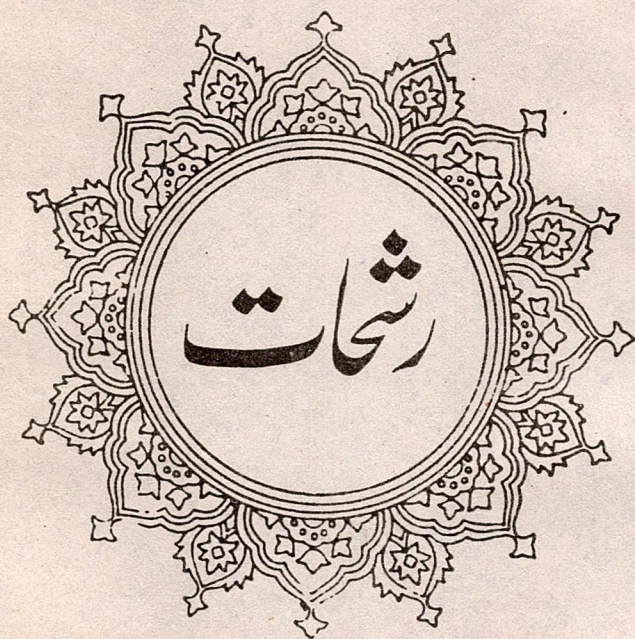 رشحات